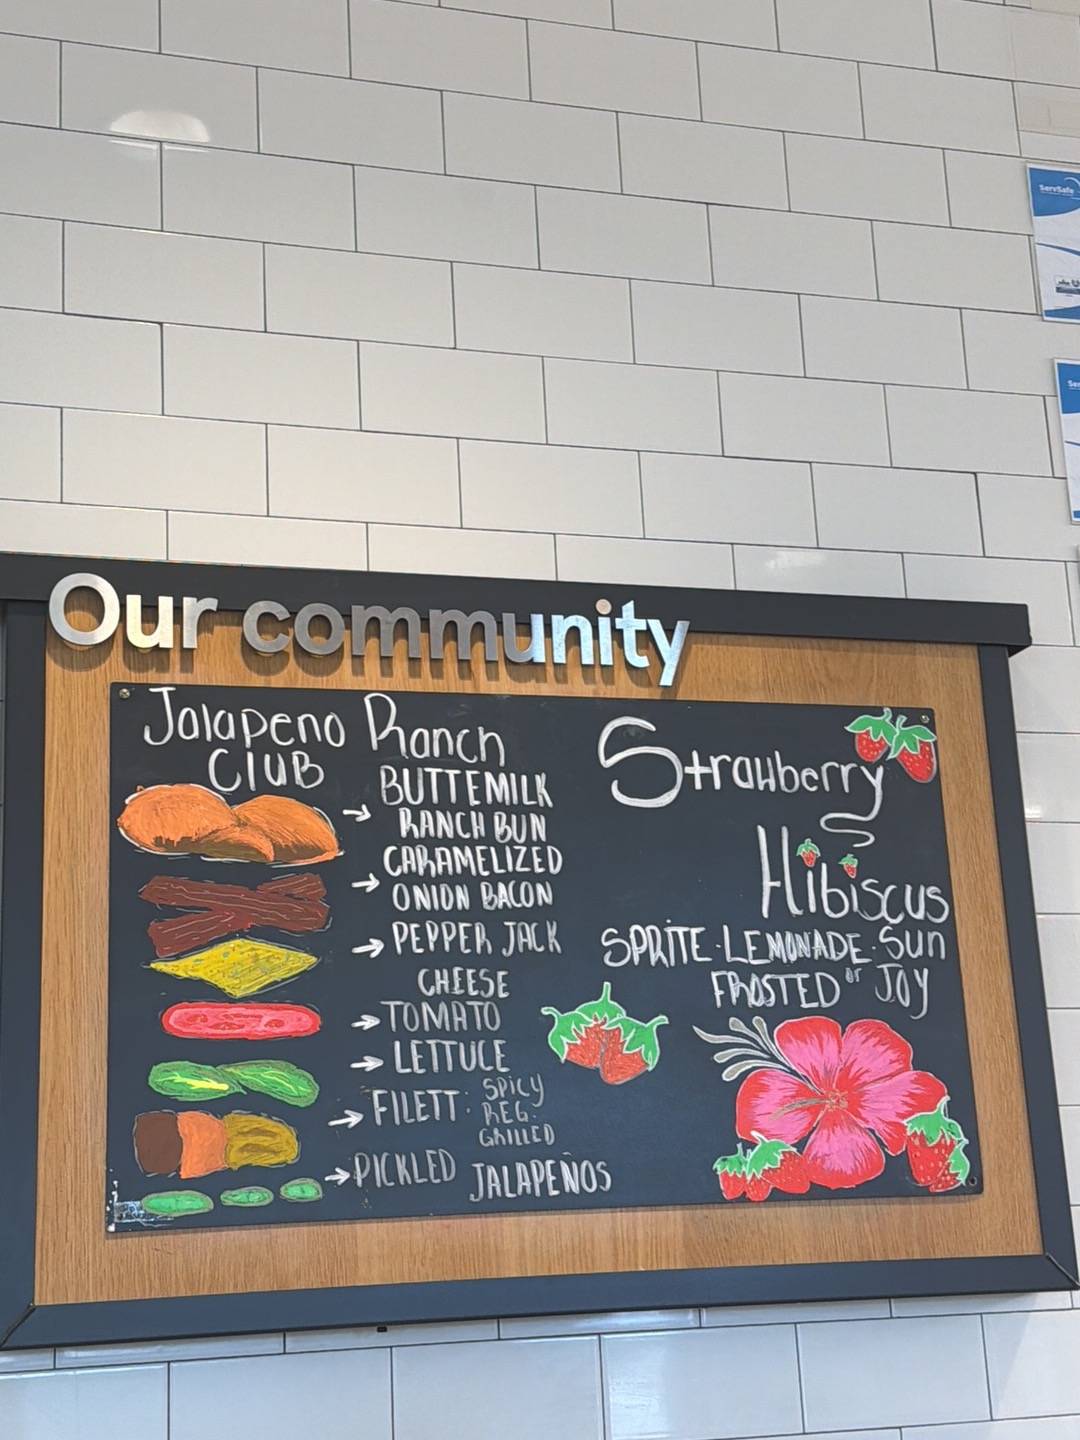 ServSafe
Our community
Jalapeno Ranch
Club
BUTTEMILK
RANCH BUN
CARAMELIZED
ONION BACON
PEPPER JACK
CHEESE
TOMATO
LETTUCE
FILETT: SPICY
REG.
GRILLED
PICKLED JALAPEÑOS
Strawberry
Hibiscus
SPRITE · LEMONADE · Sun
FROSTED or Joy